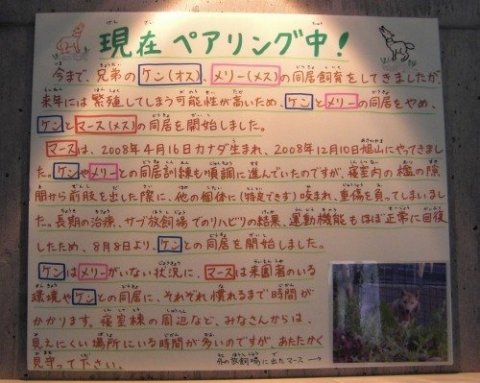 現在 ペアリング中！
今まで、兄弟のケン(オス)、メリー(メス)の同居飼育をしてきましたが、
来年には繁殖してしまう可能性が高いため、ケンとメリーの同居をやめ、
ケンとマース(メス)の同居を開始しました。
マースは、2008年4月16日カナダ生まれ、2008年12月10日旭山にやってきまし
た。ケンやメリーとの同居訓練も順調に進んでいたのですが、寝室内の檻の隙
間から前肢を出した際に、他の個体に(特定できず)咬まれ、重傷を負ってしまいまし
た。長期の治療、サブ放飼場でのリハビリの結果、運動機能もほぼ正常に回復
したため、8月8日より、ケンとの同居を開始しました。
ケンはメリーがいない状況に、マースは来園者のいる
環境やケンとの同居に、それぞれ慣れるまで時間が
かかります。寝室棟の周辺など、みなさんからは、
見えにくい場所にいる時間が多いのですが、あたたかく
見守って下さい。
の放飼場に出たマース→